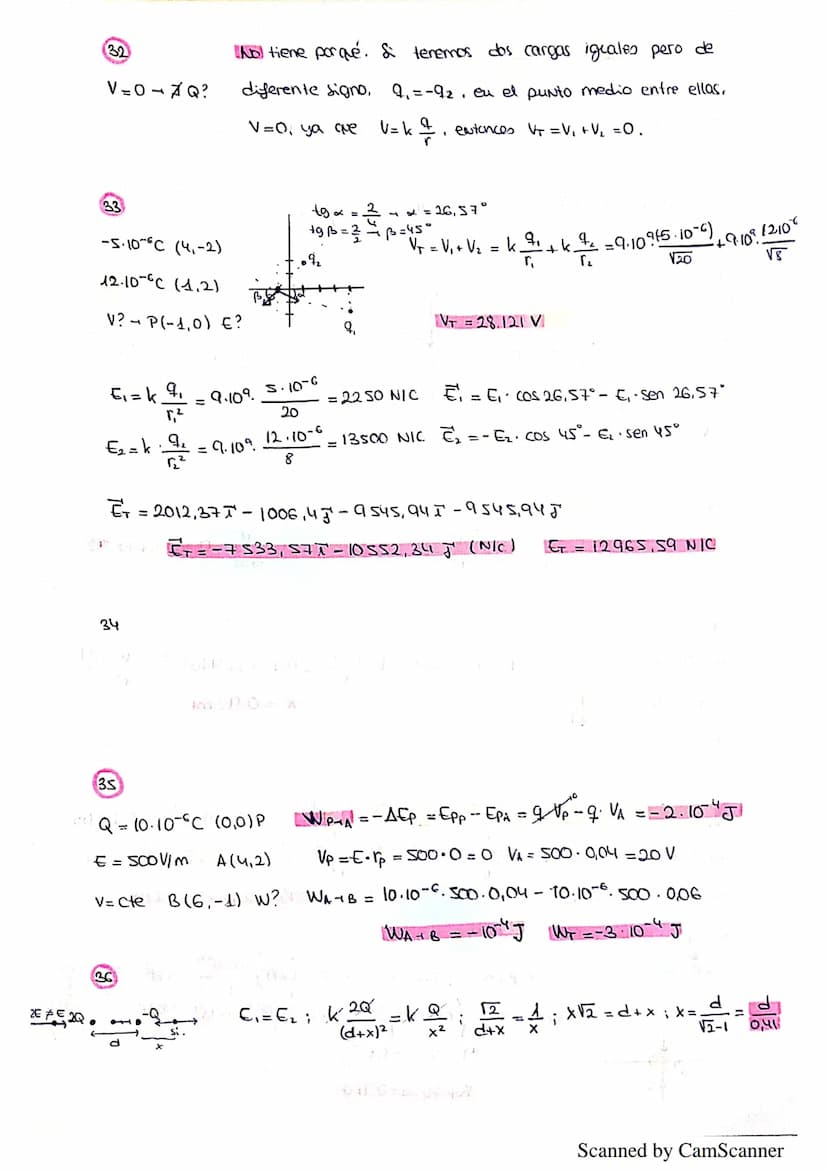 32 No tiene porqué. Si tenemos dos cargas iguales pero de
V=0 → ∄ Q? diferente signo, q₁=-q₂, en el punto medio entre ellas,
V=0, ya que V=k q/r, entonces V_T = V₁ + V₂ = 0.
33 tg α = 2/4 → α = 26,57°
tg β = 2/2 → β = 45°
-5·10⁻⁶C (4,-2) V_T = V₁ + V₂ = k q₁/r₁ + k q₂/r₂ = 9·10⁹ (-5·10⁻⁶)/√20 + 9·10⁹ · 12·10⁻⁶/√8
q₂
12·10⁻⁶C (1,2)
β α
V? → P(-1,0) E? q₁ V_T = 28.121 V
E₁ = k q₁/r₁² = 9·10⁹ · 5·10⁻⁶/20 = 2250 N/C E⃗₁ = E₁ · cos 26,57° - E₁ · sen 26,57°
E₂ = k · q₂/r₂² = 9·10⁹ · 12·10⁻⁶/8 = 13500 N/C E⃗₂ = -E₂ · cos 45° - E₂ · sen 45°
E⃗_T = 2012,37 i⃗ - 1006,4 j⃗ - 9545,94 i⃗ - 9545,94 j⃗
E⃗_T = -7533,57 i⃗ - 10552,34 j⃗ (N/C) E_T = 12965,59 N/C
34
35
Q = 10·10⁻⁶C (0,0)P W_P→A = -ΔEp = E_PP - E_PA = q·V_P⁰ - q·V_A = -2·10⁻⁴ J
E = 500V/m A(4,2) V_P = E·r_P = 500·0 = 0 V_A = 500·0,04 = 20 V
V = cte B(6,-1) W? W_A→B = 10·10⁻⁶·500·0,04 - 10·10⁻⁶·500·0,06
W_A→B = -10⁻⁴ J W_T = -3·10⁻⁴ J
36
2Q -Q E₁ = E₂ ; k 2Q/(d+x)² = k Q/x² ; √2/(d+x) = 1/x ; x√2 = d+x ; x = d/(√2-1) = d/0,41
si
d x
Scanned by CamScanner